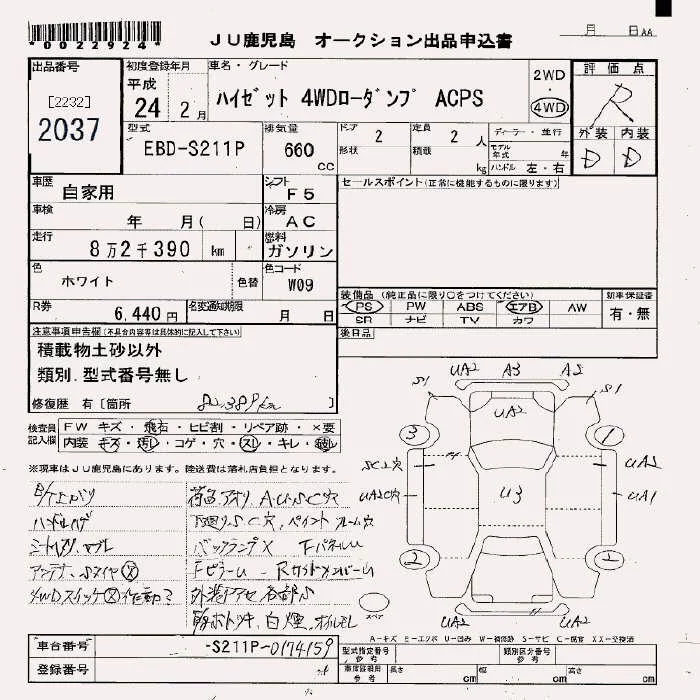 *0022924*
JU鹿児島 オークション出品申込書
月 日AA
出品番号
[2232]
2037
初度登録年月
平成
24 2月
車名・グレード
ハイゼット 4WDローダンプ ACPS
2WD
4WD
評価点
R
外装 内装
D D
型式
EBD-S211P
排気量
660
cc
ドア 2
形状
定員 2 人
積載 kg
ディーラー・並行
モデル年式 年
ハンドル 左・右
車歴
自家用
シフト
F5
セールスポイント(正常に機能するものに限ります)
車検
年 月( 日)
冷房
AC
走行
8万2千390 km
燃料
ガソリン
色
ホワイト
色替
色コード
W09
R券
6,440円
名変通知期限
月 日
装備品(純正品に限り○をつけてください)
PS PW ABS エアB AW
SR ナビ TV カワ
新車保証書
有・無
後日品
注意事項申告欄(不具合内容等は具体的に記入して下さい)
積載物土砂以外
類別.型式番号無し
修復歴 有[箇所
82,389km
検査員
記入欄
FW キズ・飛石・ヒビ割・リペア跡・X要
内装 キズ・汚レ・コゲ・穴・スレ・キレ・破レ
※現車はJU鹿児島にあります。陸送費は落札店負担となります。
アンテナ、Sタイヤⓧ
4WDスイッチⓧ作動?
荷台アオリ A.U.S.C穴
下廻りSC穴、ペイント フレーム穴
バックランプX FパネルU
FピラーU
白煙、オイルモレ
S1 UA2 A3 A2 S1
UA2
3 1
SC穴 UA2
UA2C穴 U3 UA1
2 2
スペア
UA2 UA2
A-キズ E-エクボ U-凹み W-補修跡 S-サビ C-腐食 XX-交換済
車台番号
-S211P-0174159
登録番号
型式指定番号
参考
類別区分番号
参考
車庫証明用
参考
長さ cm
幅 cm
高さ cm